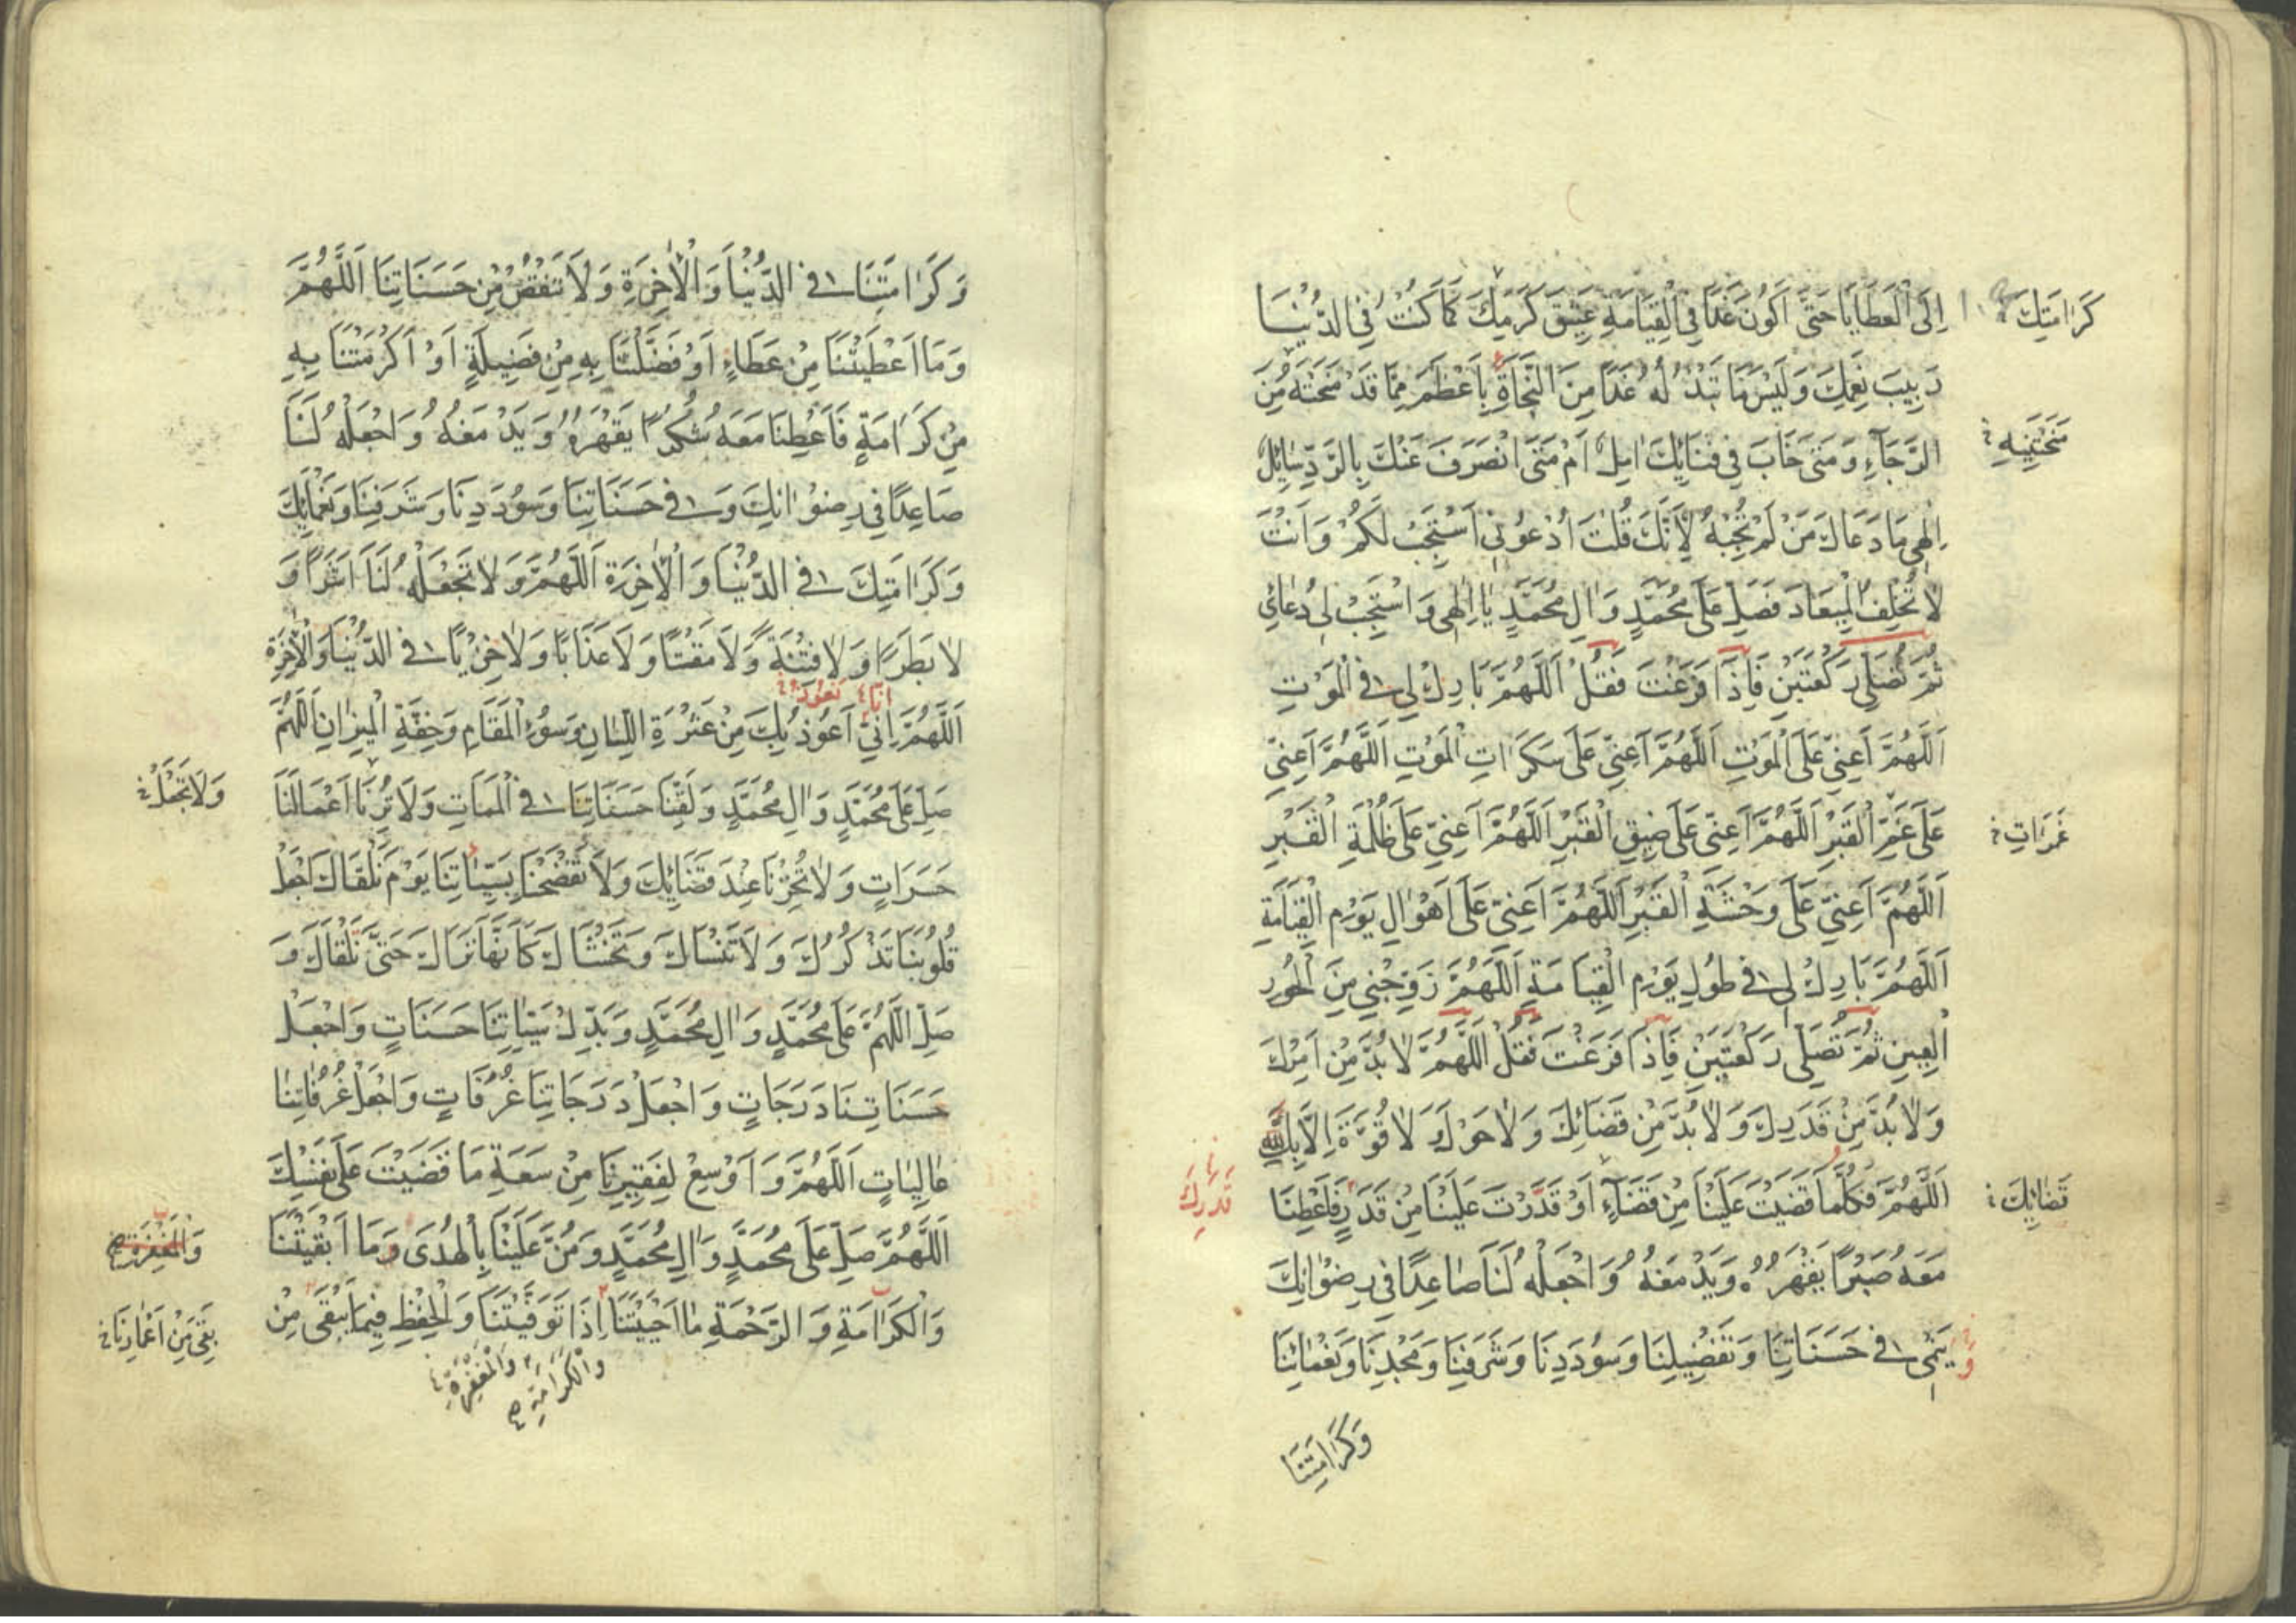 إِلَى الْعَطَايَا حَتَّى أَكُونَ غَدًا فِي الْقِيَامَةِ عَتِيقَ كَرَمِكَ كَمَا كُنْتُ فِي الدُّنْيَا
كَرَامَتِكَ
رَبِيبَ نِعَمِكَ وَلَيْسَ مَا تَبْذُلُهُ غَدًا مِنَ النَّجَاةِ بِأَعْظَمَ مِمَّا قَدْ مَنَحْتَهُ مِنَ
مَنَحْتَنِيهِ
الرَّجَاءِ وَمَتَى خَابَ فِي فِنَائِكَ آمِلٌ أَمْ مَتَى انْصَرَفَ عَنْكَ بِالرَّدِّ سَائِلٌ
إِلٰهِي مَا دَعَاكَ مَنْ لَمْ تُجِبْهُ لِأَنَّكَ قُلْتَ ادْعُونِي أَسْتَجِبْ لَكُمْ وَأَنْتَ
لَا تُخْلِفُ الْمِيعَادَ فَصَلِّ عَلَى مُحَمَّدٍ وَآلِ مُحَمَّدٍ يَا إِلٰهِي وَاسْتَجِبْ لِي دُعَائِي
ثُمَّ تُصَلِّي رَكْعَتَيْنِ فَإِذَا فَرَغْتَ فَقُلْ اَللّٰهُمَّ بَارِكْ لِي فِي الْمَوْتِ
اَللّٰهُمَّ أَعِنِّي عَلَى الْمَوْتِ اَللّٰهُمَّ أَعِنِّي عَلَى سَكَرَاتِ الْمَوْتِ اَللّٰهُمَّ أَعِنِّي
عَلَى غَمِّ الْقَبْرِ اَللّٰهُمَّ أَعِنِّي عَلَى ضِيقِ الْقَبْرِ اَللّٰهُمَّ أَعِنِّي عَلَى ظُلْمَةِ الْقَبْرِ
غَمَرَاتِ
اَللّٰهُمَّ أَعِنِّي عَلَى وَحْشَةِ الْقَبْرِ اَللّٰهُمَّ أَعِنِّي عَلَى أَهْوَالِ يَوْمِ الْقِيَامَةِ
اَللّٰهُمَّ بَارِكْ لِي فِي طُولِ يَوْمِ الْقِيَامَةِ اَللّٰهُمَّ زَوِّجْنِي مِنَ الْحُورِ
الْعِينِ ثُمَّ تُصَلِّي رَكْعَتَيْنِ فَإِذَا فَرَغْتَ فَقُلْ اَللّٰهُمَّ لَا بُدَّ مِنْ أَمْرِكَ
وَلَا بُدَّ مِنْ قَدَرِكَ وَلَا بُدَّ مِنْ قَضَائِكَ وَلَا حَوْلَ وَلَا قُوَّةَ إِلَّا بِكَ
اَللّٰهُمَّ فَكُلَّمَا قَضَيْتَ عَلَيْنَا مِنْ قَضَاءٍ أَوْ قَدَّرْتَ عَلَيْنَا مِنْ قَدَرٍ فَأَعْطِنَا
قَضَائِكَ
قَدَرِكَ
مَعَهُ صَبْرًا يَقْهَرُهُ وَيَدْمَغُهُ وَاجْعَلْهُ لَنَا صَاعِدًا فِي رِضْوَانِكَ
يَنْمِي فِي حَسَنَاتِنَا وَتَفْضِيلِنَا وَسُؤْدَدِنَا وَشَرَفِنَا وَمَجْدِنَا وَنَعْمَائِنَا
وَكَرَامَتِنَا
وَكَرَامَتِنَا فِي الدُّنْيَا وَالْآخِرَةِ وَلَا تَنْقُصْ مِنْ حَسَنَاتِنَا اَللّٰهُمَّ
وَمَا أَعْطَيْتَنَا مِنْ عَطَاءٍ أَوْ فَضَّلْتَنَا بِهِ مِنْ فَضِيلَةٍ أَوْ أَكْرَمْتَنَا بِهِ
مِنْ كَرَامَةٍ فَأَعْطِنَا مَعَهُ شُكْرًا يَقْهَرُهُ وَيَدْمَغُهُ وَاجْعَلْهُ لَنَا
صَاعِدًا فِي رِضْوَانِكَ وَفِي حَسَنَاتِنَا وَسُؤْدَدِنَا وَشَرَفِنَا وَنَعْمَائِكَ
وَكَرَامَتِكَ فِي الدُّنْيَا وَالْآخِرَةِ اَللّٰهُمَّ وَلَا تَجْعَلْهُ لَنَا أَشَرًا وَ
لَا بَطَرًا وَلَا فِتْنَةً وَلَا مَقْتًا وَلَا عَذَابًا وَلَا خِزْيًا فِي الدُّنْيَا وَالْآخِرَةِ
إِنَّا نَعُوذُ
اَللّٰهُمَّ إِنِّي أَعُوذُ بِكَ مِنْ عَثْرَةِ اللِّسَانِ وَسُوءِ الْمَقَامِ وَخِفَّةِ الْمِيزَانِ اَللّٰهُمَّ
صَلِّ عَلَى مُحَمَّدٍ وَآلِ مُحَمَّدٍ وَلَقِّنَا حَسَنَاتِنَا فِي الْمَمَاتِ وَلَا تُرِنَا أَعْمَالَنَا
وَلَا تَجْعَلْ
حَسَرَاتٍ وَلَا تُخْزِنَا عِنْدَ قَضَائِكَ وَلَا تَفْضَحْنَا بِسَيِّئَاتِنَا يَوْمَ نَلْقَاكَ وَاجْعَلْ
قُلُوبَنَا تَذْكُرُكَ وَلَا تَنْسَاكَ وَتَخْشَاكَ كَأَنَّهَا تَرَاكَ حَتَّى نَلْقَاكَ وَ
صَلِّ اللّٰهُمَّ عَلَى مُحَمَّدٍ وَآلِ مُحَمَّدٍ وَبَدِّلْ سَيِّئَاتِنَا حَسَنَاتٍ وَاجْعَلْ
حَسَنَاتِنَا دَرَجَاتٍ وَاجْعَلْ دَرَجَاتِنَا غُرُفَاتٍ وَاجْعَلْ غُرُفَاتِنَا
عَالِيَاتٍ اَللّٰهُمَّ وَأَوْسِعْ لِفَقِيرِنَا مِنْ سَعَةِ مَا قَضَيْتَ عَلَى نَفْسِكَ
اَللّٰهُمَّ صَلِّ عَلَى مُحَمَّدٍ وَآلِ مُحَمَّدٍ وَمُنَّ عَلَيْنَا بِالْهُدَى وَمَا أَبْقَيْتَنَا
وَالْمَغْفِرَةِ
وَالْكَرَامَةِ وَالرَّحْمَةِ مَا أَحْيَيْتَنَا إِذَا تَوَفَّيْتَنَا وَالْحِفْظِ فِيمَا يَبْقَى مِنْ
بَقِيَ مِنْ أَعْمَارِنَا
وَالْكَرَامَةِ
وَالْمَغْفِرَةِ